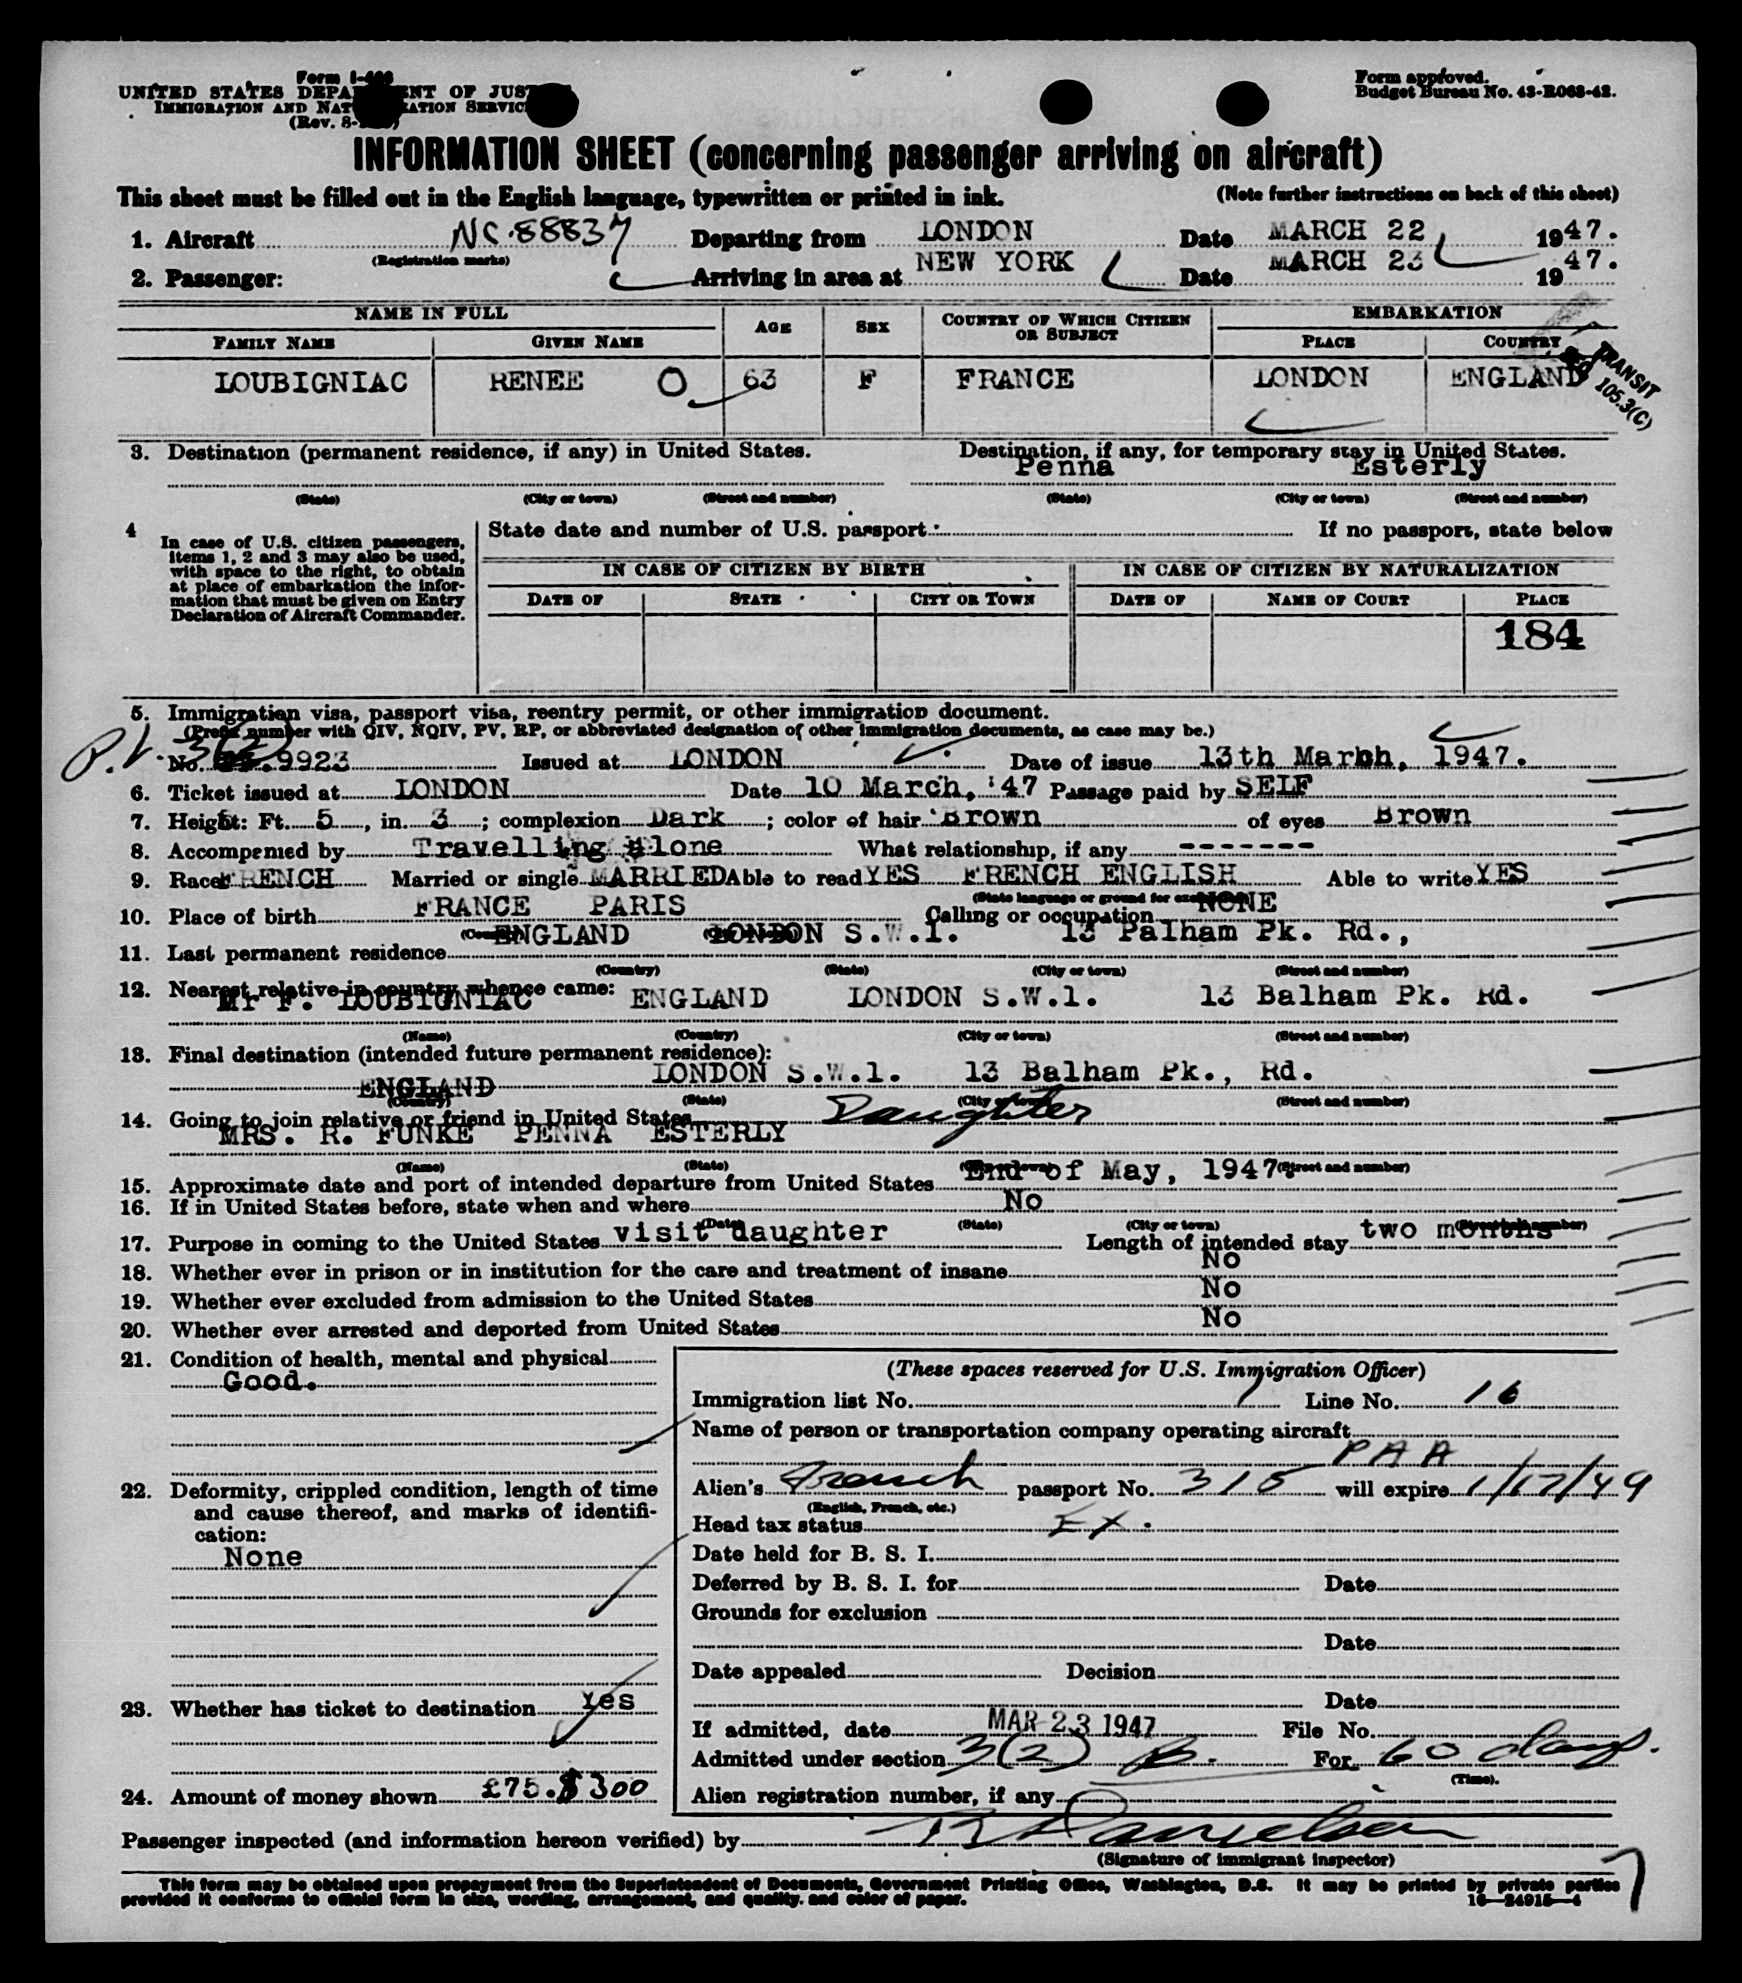 Form I-466
UNITED STATES DEPA NT OF JUS
IMMIGRATION AND NAT ATION SERVIC
(Rev. 8-
Form approved.
Budget Bureau No. 43-R063-42.
INFORMATION SHEET (concerning passenger arriving on aircraft)
This sheet must be filled out in the English language, typewritten or printed in ink. (Note further instructions on back of this sheet)
1. Aircraft NC·88837 Departing from LONDON Date MARCH 22 1947.
(Registration marks)
2. Passenger: Arriving in area at NEW YORK Date MARCH 23 1947.
NAME IN FULL AGE SEX COUNTRY OF WHICH CITIZEN OR SUBJECT EMBARKATION
FAMILY NAME GIVEN NAME PLACE COUNTRY
LOUBIGNIAC RENEE O 63 F FRANCE LONDON ENGLAND
TRANSIT
105.3(C)
3. Destination (permanent residence, if any) in United States. Destination, if any, for temporary stay in United States.
Penna Esterly
(State) (City or town) (Street and number) (State) (City or town) (Street and number)
4 In case of U.S. citizen passengers, items 1, 2 and 3 may also be used, with space to the right, to obtain at place of embarkation the information that must be given on Entry Declaration of Aircraft Commander.
State date and number of U.S. passport: If no passport, state below
IN CASE OF CITIZEN BY BIRTH IN CASE OF CITIZEN BY NATURALIZATION
DATE OF STATE CITY OR TOWN DATE OF NAME OF COURT PLACE
184
5. Immigration visa, passport visa, reentry permit, or other immigration document.
(Prefix number with QIV, NQIV, PV, RP, or abbreviated designation of other immigration documents, as case may be.)
P.V. 3(2)
No. 9923 Issued at LONDON Date of issue 13th March, 1947.
6. Ticket issued at LONDON Date 10 March, '47 Passage paid by SELF
7. Height: Ft. 5, in. 3; complexion Dark; color of hair Brown of eyes Brown
8. Accompanied by Travelling alone What relationship, if any -------
9. Race FRENCH Married or single MARRIED Able to read YES FRENCH ENGLISH Able to write YES
(State language or ground for exemption)
10. Place of birth FRANCE PARIS Calling or occupation NONE
(Country)
11. Last permanent residence ENGLAND LONDON S.W.1. 13 Palham Pk. Rd.,
(Country) (State) (City or town) (Street and number)
12. Nearest relative in country whence came:
Mr F. LOUBIGNIAC ENGLAND LONDON S.W.1. 13 Balham Pk. Rd.
(Name) (Country) (City or town) (Street and number)
13. Final destination (intended future permanent residence):
ENGLAND LONDON S.W.1. 13 Balham Pk., Rd.
(Country) (State) (City or town) (Street and number)
14. Going to join relative or friend in United States Daughter
MRS. R. FUNKE PENNA ESTERLY
(Name) (State) (City or town) (Street and number)
15. Approximate date and port of intended departure from United States End of May, 1947.
16. If in United States before, state when and where No
(Date) (State) (City or town) (Street and number)
17. Purpose in coming to the United States visit daughter Length of intended stay two months
18. Whether ever in prison or in institution for the care and treatment of insane No
19. Whether ever excluded from admission to the United States No
20. Whether ever arrested and deported from United States No
21. Condition of health, mental and physical
Good.
22. Deformity, crippled condition, length of time
and cause thereof, and marks of identifi-
cation:
None
23. Whether has ticket to destination Yes
24. Amount of money shown £75. $300
(These spaces reserved for U.S. Immigration Officer)
Immigration list No. 1 Line No. 16
Name of person or transportation company operating aircraft
PAA
Alien's French passport No. 315 will expire 1/17/49
(English, French, etc.)
Head tax status Ex.
Date held for B. S. I.
Deferred by B. S. I. for Date
Grounds for exclusion
Date
Date appealed Decision
Date
If admitted, date MAR 23 1947 File No.
Admitted under section 3(2) B. For 60 days.
(Time).
Alien registration number, if any
Passenger inspected (and information hereon verified) by
(Signature of immigrant inspector)
This form may be obtained upon prepayment from the Superintendent of Documents, Government Printing Office, Washington, D.C. It may be printed by private parties
provided it conforms to official form in size, wording, arrangement, and quality, and color of paper. 16—24915—4